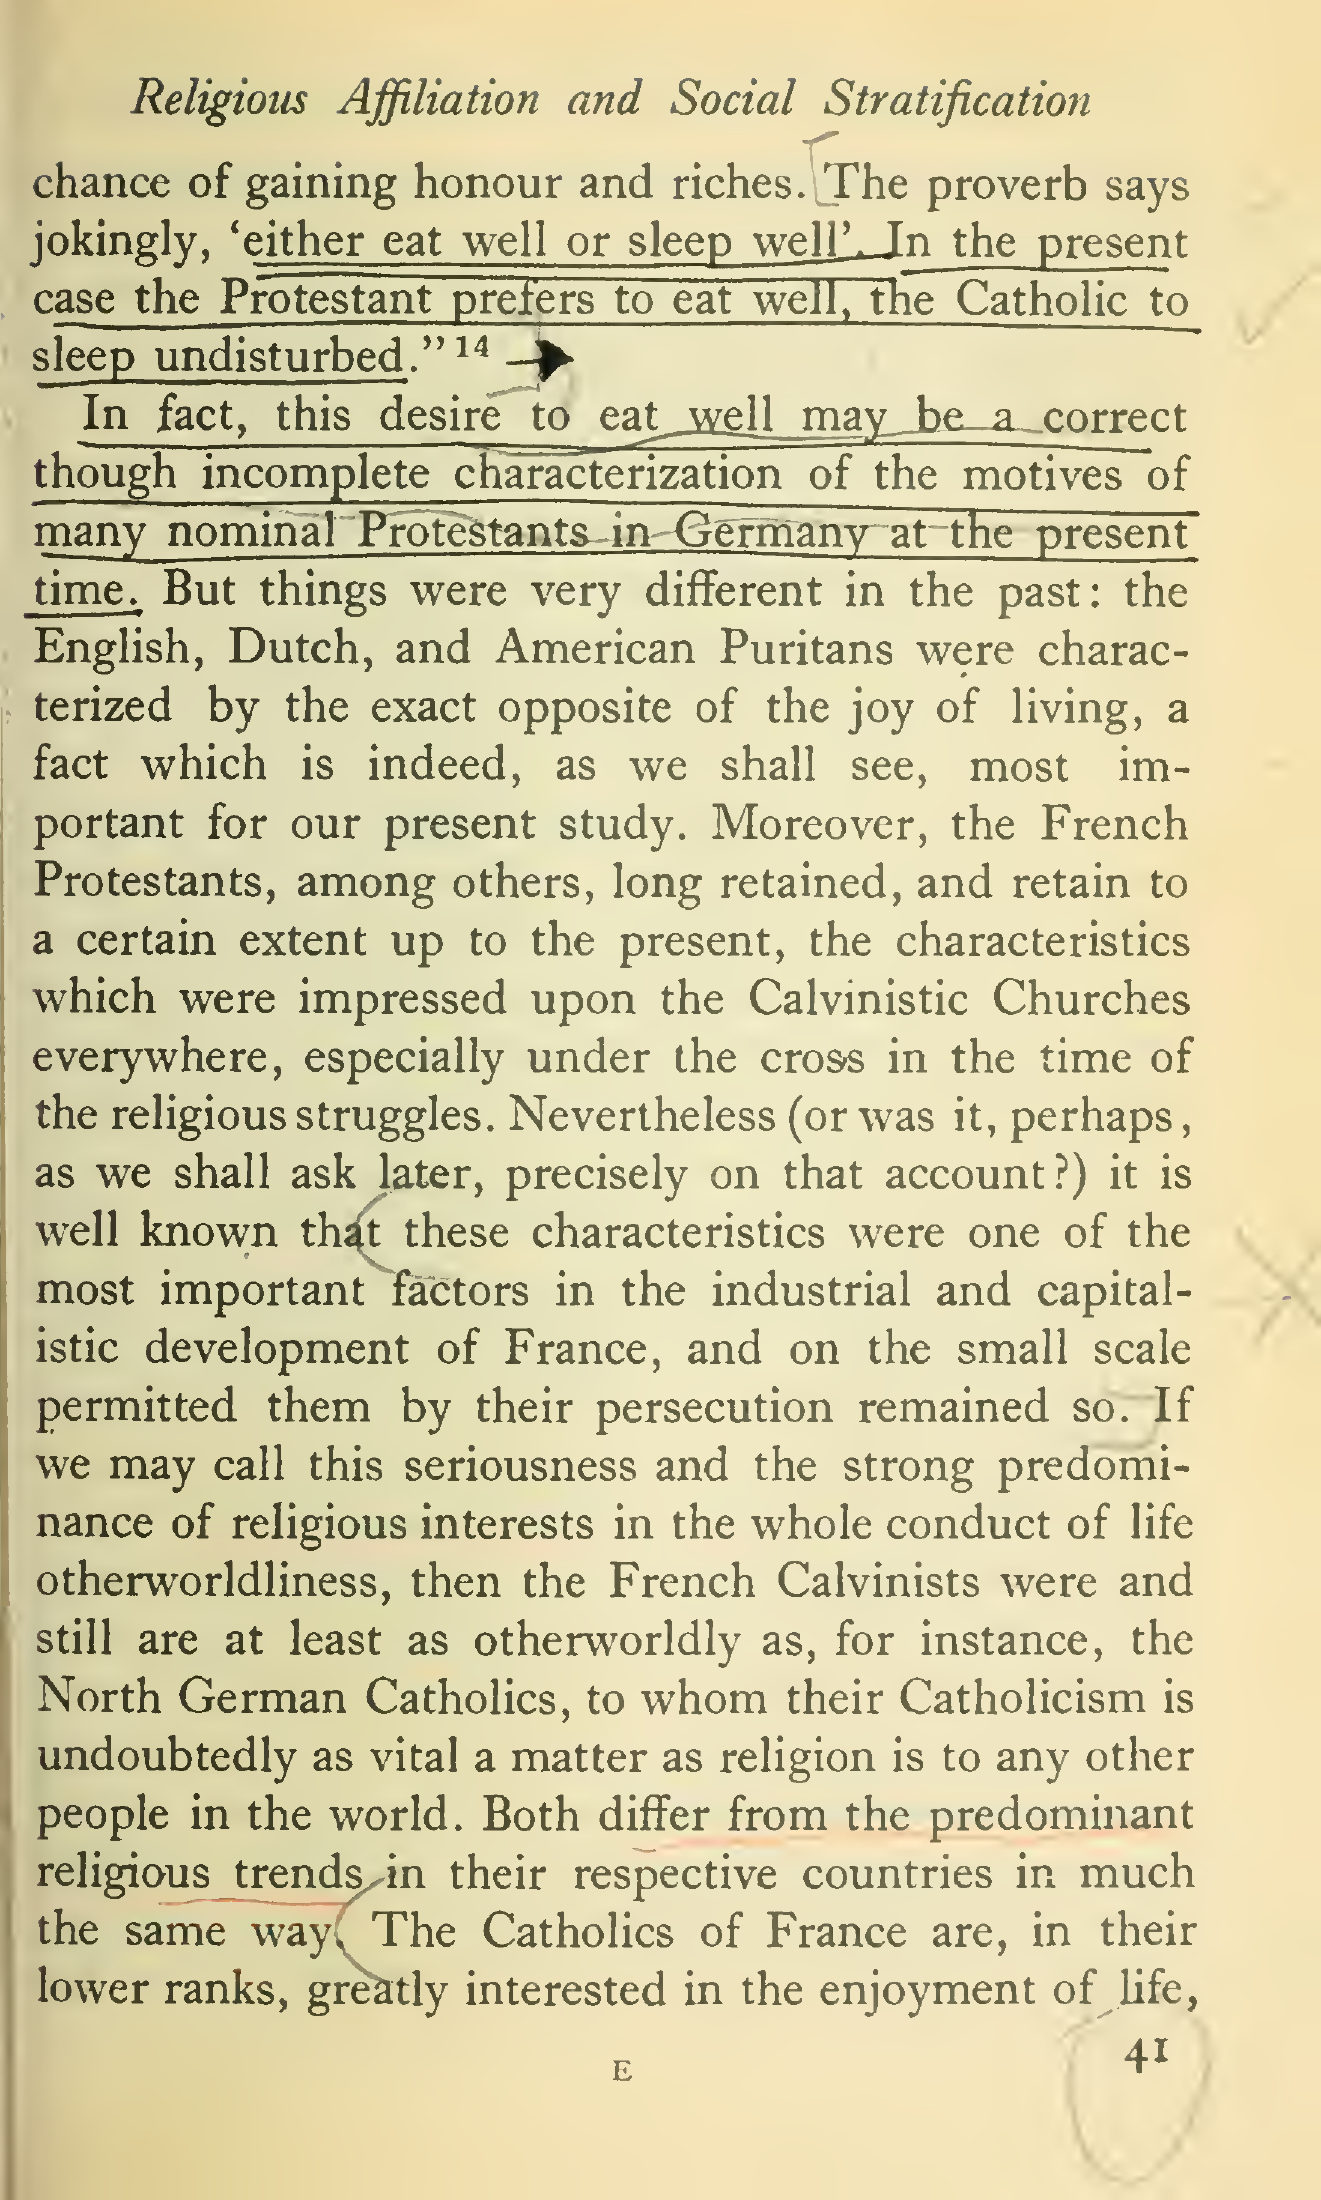 Religious Affiliation and Social Stratification
chance of gaining honour and riches. The proverb says
jokingly, ‘either eat well or sleep well’. In the present
case the Protestant prefers to eat well, the Catholic to
sleep undisturbed.” 14
In fact, this desire to eat well may be a correct
though incomplete characterization of the motives of
many nominal Protestants in Germany at the present
time. But things were very different in the past: the
English, Dutch, and American Puritans were charac-
terized by the exact opposite of the joy of living, a
fact which is indeed, as we shall see, most im-
portant for our present study. Moreover, the French
Protestants, among others, long retained, and retain to
a certain extent up to the present, the characteristics
which were impressed upon the Calvinistic Churches
everywhere, especially under the cross in the time of
the religious struggles. Nevertheless (or was it, perhaps,
as we shall ask later, precisely on that account?) it is
well known that these characteristics were one of the
most important factors in the industrial and capital-
istic development of France, and on the small scale
permitted them by their persecution remained so. If
we may call this seriousness and the strong predomi-
nance of religious interests in the whole conduct of life
otherworldliness, then the French Calvinists were and
still are at least as otherworldly as, for instance, the
North German Catholics, to whom their Catholicism is
undoubtedly as vital a matter as religion is to any other
people in the world. Both differ from the predominant
religious trends in their respective countries in much
the same way. The Catholics of France are, in their
lower ranks, greatly interested in the enjoyment of life,
E 41